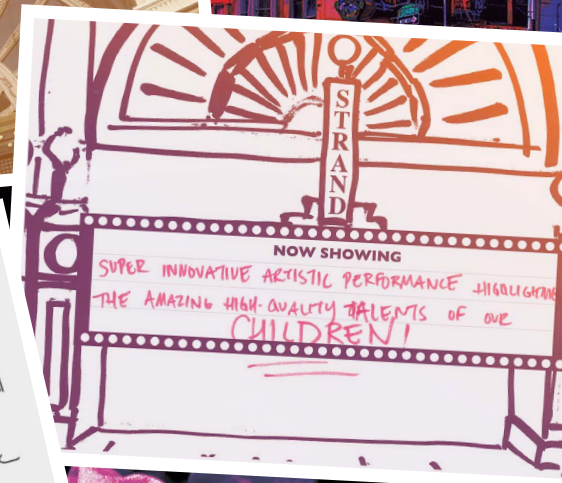 STRAND
NOW SHOWING
SUPER INNOVATIVE ARTISTIC PERFORMANCE HIGHLIGHTING
THE AMAZING HIGH-QUALITY TALENTS OF OUR
CHILDREN!